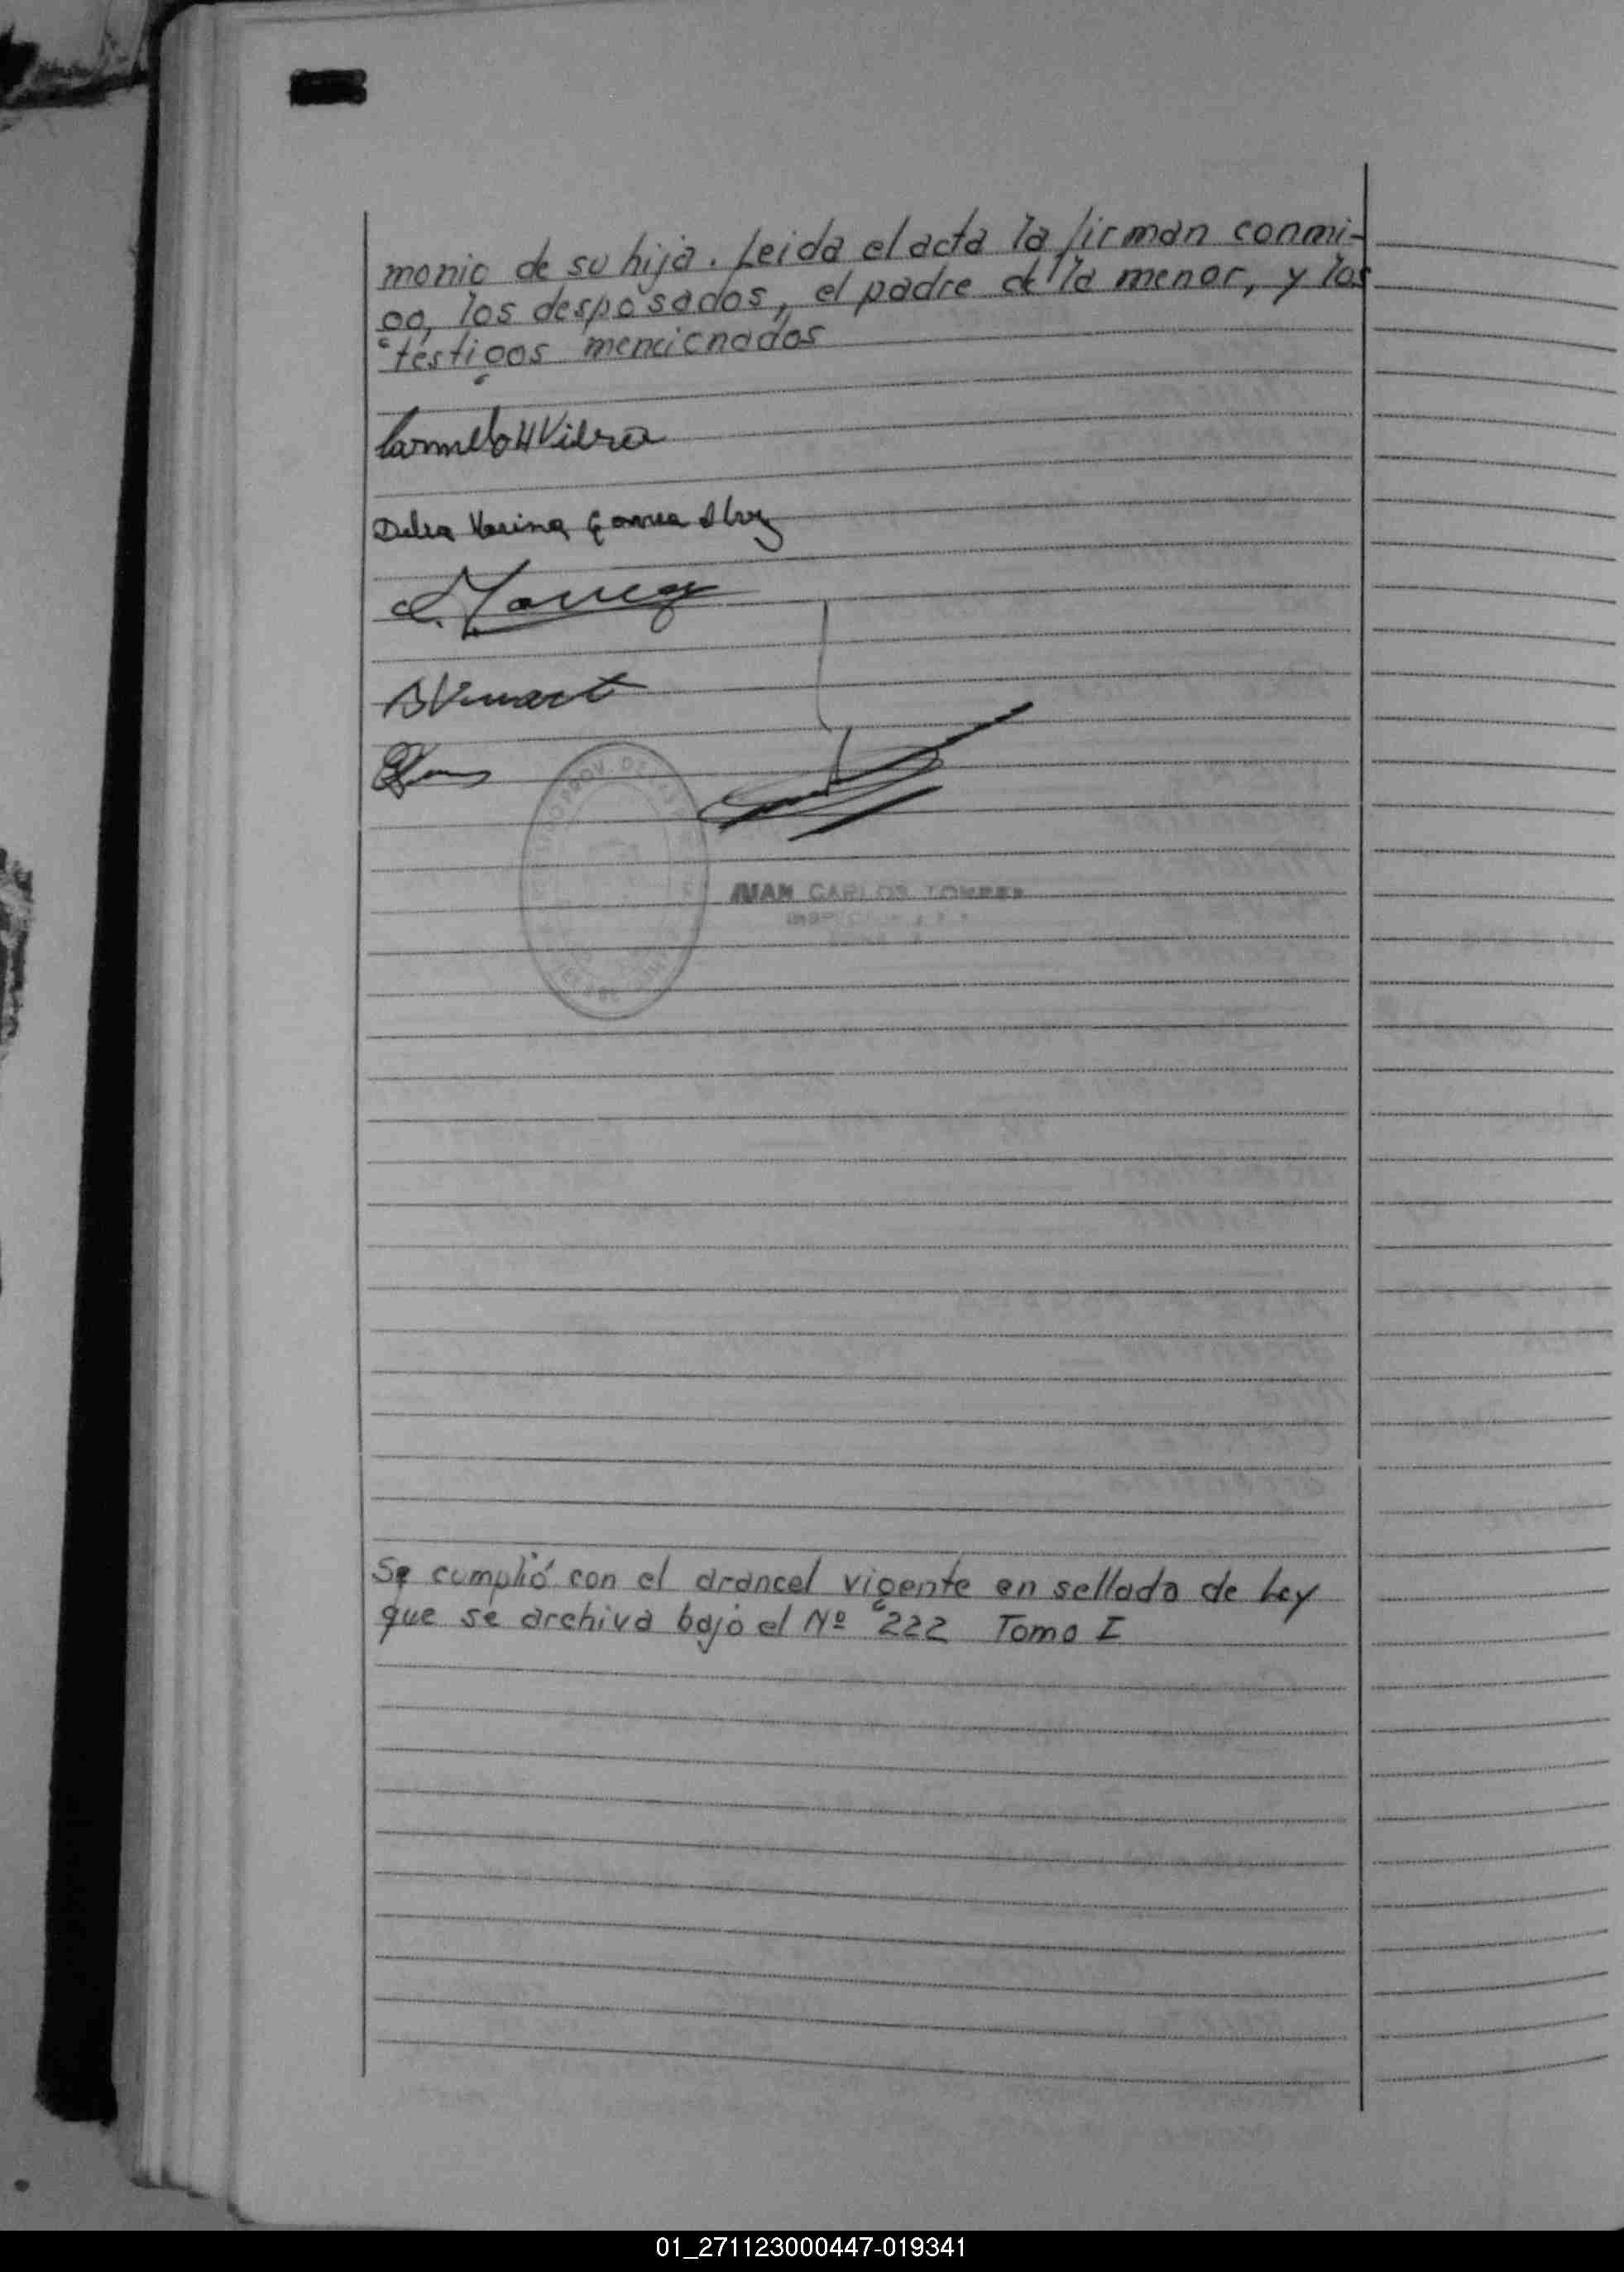 monio de su hija. Leida el acta la firman conmi-
go, los desposados, el padre de la menor, y los
testigos mencionados
Carmelo H Vilra
Delia Karina
PROV. DE
JUAN CARLOS TORRES
Se cumplió con el arancel vigente en sellado de Ley
que se archiva bajo el Nº 222 Tomo I
01_271123000447-019341